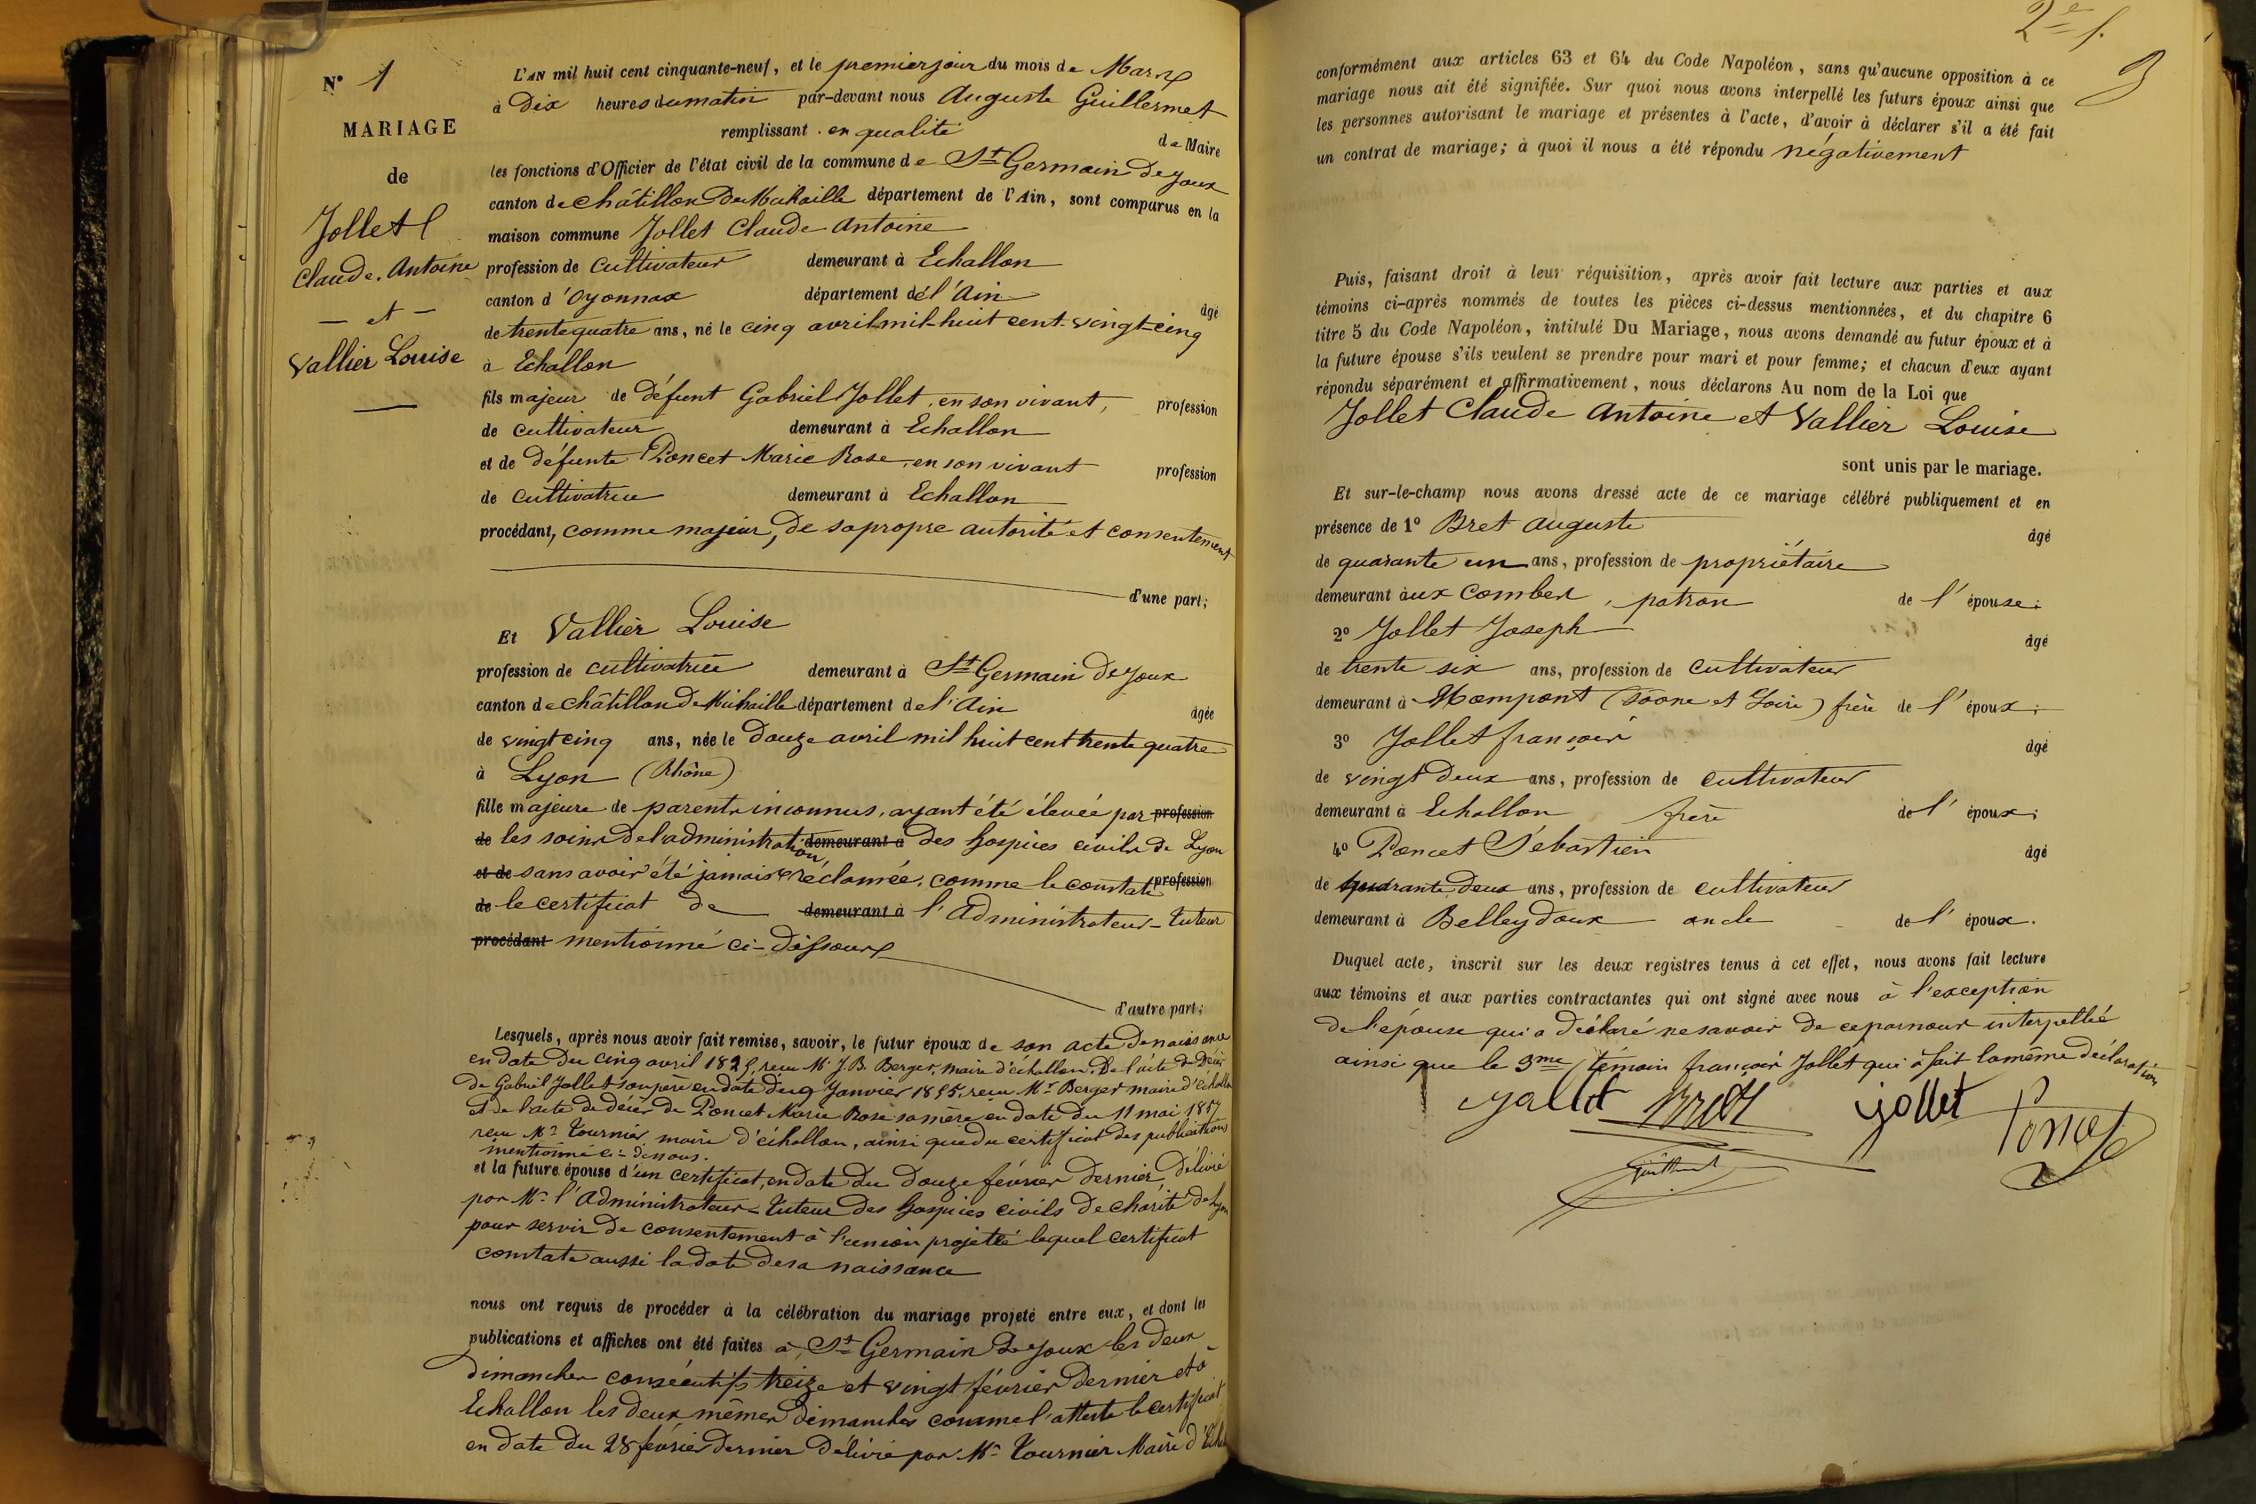 N° 1
MARIAGE
de
Jollet
Claude. Antoine
— et —
Vallier Louise
L'AN mil huit cent cinquante-neuf, et le premier jour du mois de Mars
à Dix heures du matin par-devant nous Auguste Guillermet
remplissant en qualité de Maire
les fonctions d'Officier de l'état civil de la commune de St Germain De Joux
canton de Châtillon De Michaille département de l'Ain, sont comparus en la
maison commune Jollet Claude Antoine
profession de Cultivateur demeurant à Echallon
canton d'Oyonnax département de l'Ain âgé
de trente quatre ans, né le cinq avril mil-huit cent-vingt-cinq
à Echallon
fils majeur de Défunt Gabriel Jollet, en son vivant, profession
de cultivateur demeurant à Echallon
et de défunte Poncet Marie Rose, en son vivant profession
de cultivatrice demeurant à Echallon
procédant, comme majeur, De sa propre autorité et consentement
d'une part;
Et Vallier Louise
profession de cultivatrice demeurant à St Germain De Joux
canton de Châtillon De Michaille département de l'Ain âgée
de vingt cinq ans, née le Douze avril mil huit cent trente quatre
à Lyon (Rhône)
fille majeure de parents inconnus, ayant été élevée par profession
de les soins De l'administration demeurant à Des hospices civils de Lyon
et de sans avoir été jamais réclamée, comme le constate profession
de le certificat de demeurant à l'Administrateur-tuteur
procédant mentionné ci-Dessous
d'autre part;
Lesquels, après nous avoir fait remise, savoir, le futur époux de son acte De naissance
en date Du cinq avril 1825, reçu Mr J.B. Berger, maire d'échallon, De l'acte De Décès
De Gabriel Jollet son père en date du 9 Janvier 1855, reçu Mr Berger maire d'échallon
et de l'acte de décès de Poncet Marie Rose sa mère en date Du 11 mai
reçu Mr Tournier maire d'échallon, ainsi que du certificat Des publications
mentionné ci-dessous.
et la future épouse d'un certificat, en date Du Douze février Dernier Délivré
par Mr l'Administrateur-Tuteur Des hospices civils De charité De Lyon
pour servir De consentement à l'union projetée lequel certificat
constate aussi la date de sa naissance
nous ont requis de procéder à la célébration du mariage projeté entre eux, et dont les
publications et affiches ont été faites à St Germain De Joux les Deux
Dimanches consécutifs treize et vingt février Dernier et à
Echallon les deux mêmes Dimanches comme l'atteste le certificat
en date Du 28 février Dernier Délivré par Mr Tournier Maire d'
2e f.
3
conformément aux articles 63 et 64 du Code Napoléon, sans qu'aucune opposition à ce
mariage nous ait été signifiée. Sur quoi nous avons interpellé les futurs époux ainsi que
les personnes autorisant le mariage et présentes à l'acte, d'avoir à déclarer s'il a été fait
un contrat de mariage; à quoi il nous a été répondu négativement
Puis, faisant droit à leur réquisition, après avoir fait lecture aux parties et aux
témoins ci-après nommés de toutes les pièces ci-dessus mentionnées, et du chapitre 6
titre 5 du Code Napoléon, intitulé Du Mariage, nous avons demandé au futur époux et à
la future épouse s'ils veulent se prendre pour mari et pour femme; et chacun d'eux ayant
répondu séparément et affirmativement, nous déclarons Au nom de la Loi que
Jollet Claude Antoine et Vallier Louise
sont unis par le mariage.
Et sur-le-champ nous avons dressé acte de ce mariage célébré publiquement et en
présence de 1° Bret Auguste âgé
de quarante un ans, profession de propriétaire
demeurant aux Combes, patron de l'épouse;
2° Jollet Joseph âgé
de trente six ans, profession de cultivateur
demeurant à (Saône et Loire) frère de l'époux;
3° Jollet françois âgé
de vingt Deux ans, profession de cultivateur
demeurant à Echallon frère de l'époux;
4° Poncet Sébastien âgé
de quarante deux ans, profession de cultivateur
demeurant à Belleydoux oncle de l'époux.
Duquel acte, inscrit sur les deux registres tenus à cet effet, nous avons fait lecture
aux témoins et aux parties contractantes qui ont signé avec nous à l'exception
De l'épouse qui a déclaré ne savoir de ce par nous interpellée
ainsi que le 3me témoin françois Jollet qui a fait la même déclaration
Jollet Bret Jollet Poncet
Guillermet